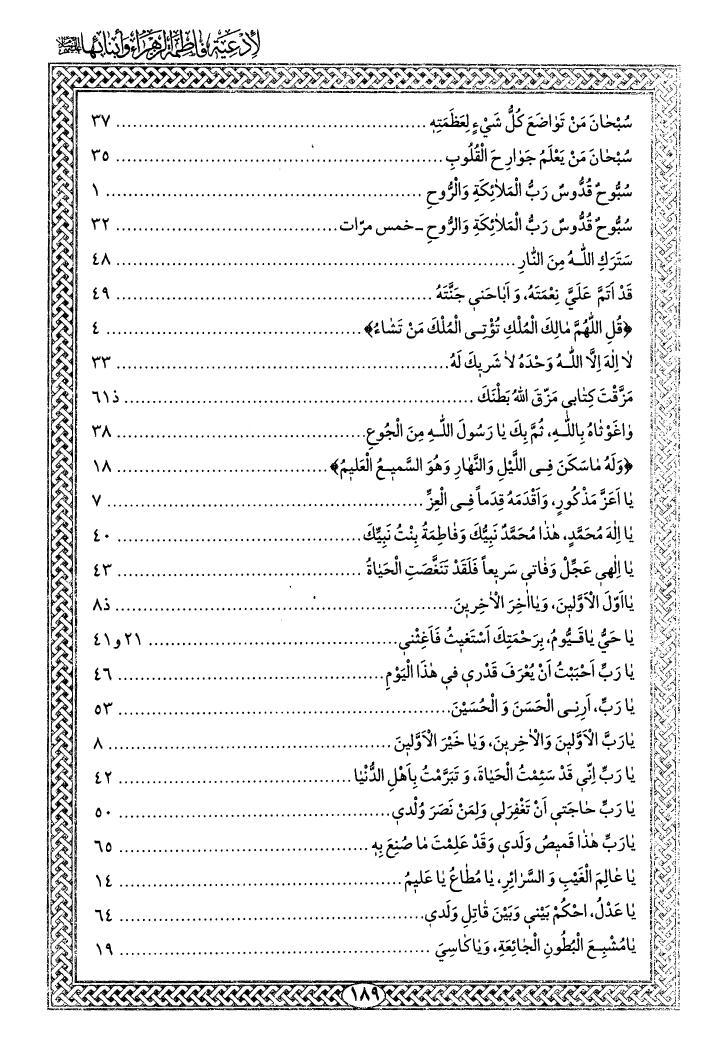 لأدعية فاطمة الزهراء وأبنائها
سُبْحٰانَ مَنْ تَوٰاضَعَ كُلُّ شَيْءٍ لِعَظَمَتِهِ ........ ٣٧
سُبْحٰانَ مَنْ يَعْلَمُ جَوٰارِحَ الْقُلُوبِ ........ ٣٥
سُبُّوحٌ قُدُّوسٌ رَبُّ الْمَلاٰئِكَةِ وَالْرُّوحِ ........ ١
سُبُّوحٌ قُدُّوسٌ رَبُّ الْمَلاٰئِكَةِ وَالرُّوحِ ـ خمس مرّات ........ ٣٢
سَتَرَكِ اللّٰهُ مِنَ النّٰارِ ........ ٤٨
قَدْ اَتَمَّ عَلَيَّ نِعْمَتَهُ، وَ اَبٰاحَنى جَنَّتَهُ ........ ٤٩
﴿قُلِ اللّٰهُمَّ مٰالِكَ الْمُلْكِ تُؤْتِى الْمُلْكَ مَنْ تَشٰاءُ﴾ ........ ٤
لاٰ اِلٰهَ اِلَّا اللّٰهُ وَحْدَهُ لاٰ شَريكَ لَهُ ........ ٣٣
مَزَّقْتَ كِتٰابى مَزَّقَ اللّٰهُ بَطْنَكَ ........ ذ٦١
وٰاغَوْثٰاهُ بِاللّٰهِ، ثُمَّ بِكَ يٰا رَسُولَ اللّٰهِ مِنَ الْجُوعِ ........ ٣٨
﴿وَلَهُ مٰاسَكَنَ فِى اللَّيْلِ وَالنَّهٰارِ وَهُوَ السَّميعُ الْعَليمُ﴾ ........ ١٨
يٰا اَعَزَّ مَذْكُورٍ، وَاَقْدَمَهُ قِدَماً فِى الْعِزِّ ........ ٧
يٰا اِلٰهَ مُحَمَّدٍ، هٰذٰا مُحَمَّدٌ نَبِيُّكَ وَفٰاطِمَةُ بِنْتُ نَبِيِّكَ ........ ٤٠
يٰا اِلٰهى عَجِّلْ وَفٰاتى سَريعاً فَلَقَدْ تَنَغَّصَتِ الْحَيٰاةُ ........ ٤٣
يٰااَوَّلَ الْاَوَّلينَ، وَيٰااٰخِرَ الْاٰخِرينَ ........ ذ٨
يٰا حَيُّ يٰاقَيُّومُ، بِرَحْمَتِكَ اَسْتَغيثُ فَاَغِثْنى ........ ٢١ و٤١
يٰا رَبِّ اَحْبَبْتُ اَنْ يُعْرَفَ قَدْرى فى هٰذَا الْيَوْمِ ........ ٤٦
يٰا رَبِّ، اَرِنِى الْحَسَنَ وَ الْحُسَيْنَ ........ ٥٣
يٰارَبَّ الْاَوَّلينَ وَالْاٰخِرينَ، وَيٰا خَيْرَ الْاَوَّلينَ ........ ٨
يٰا رَبِّ اِنّى قَدْ سَئِمْتُ الْحَيٰاةَ، وَ تَبَرَّمْتُ بِاَهْلِ الدُّنْيٰا ........ ٤٢
يٰا رَبِّ حٰاجَتى اَنْ تَغْفِرَلى وَلِمَنْ نَصَرَ وُلْدى ........ ٥٠
يٰارَبِّ هٰذٰا قَميصُ وَلَدى وَقَدْ عَلِمْتَ مٰا صُنِعَ بِهِ ........ ٦٥
يٰا عٰالِمَ الْغَيْبِ وَ السَّرٰائِرِ، يٰا مُطٰاعُ يٰا عَليمُ ........ ١٤
يٰا عَدْلُ، احْكُمْ بَيْنى وَبَيْنَ قٰاتِلِ وَلَدى ........ ٦٤
يٰامُشْبِعَ الْبُطُونِ الْجٰائِعَةِ، وَيٰاكٰاسِيَ ........ ١٩
١٨٩